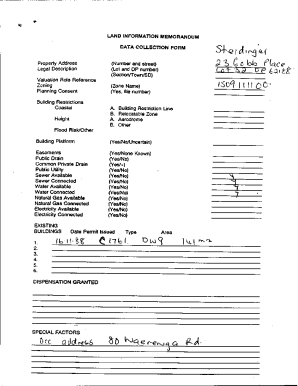 LAND INFORMATION MEMORANDUM
DATA COLLECTION FORM
Property Address (Number and street) 23 Cobb Place
Legal Description (Lot and DP number) Lot 32 DP
(Section/Town/SD)
Valuation Role Reference
Zoning (Zone Name)
Planning Consent (Yes, file number)
Building Restrictions
Coastal A. Building Restriction Line
B. Relocatable Zone
Height A. Aerodrome
B. Other
Flood Risk/Other
Building Platform (Yes/No/Uncertain)
Easements (Yes/None Known)
Public Drain (Yes/No)
Common Private Drain (Yes/-)
Public Utility (Yes/No)
Sewer Available (Yes/No)
Sewer Connected (Yes/No)
Water Available (Yes/No)
Water Connected (Yes/No)
Natural Gas Available (Yes/No)
Natural Gas Connected (Yes/No)
Electricity Available (Yes/No)
Electricity Connected (Yes/No)
EXISTING
BUILDINGS Date Permit Issued Type Area
1. 16.11.38 C1761 DWG 141 m2
2.
3.
4.
5.
6.
DISPENSATION GRANTED
SPECIAL FACTORS
Dcc address 80 Rd.